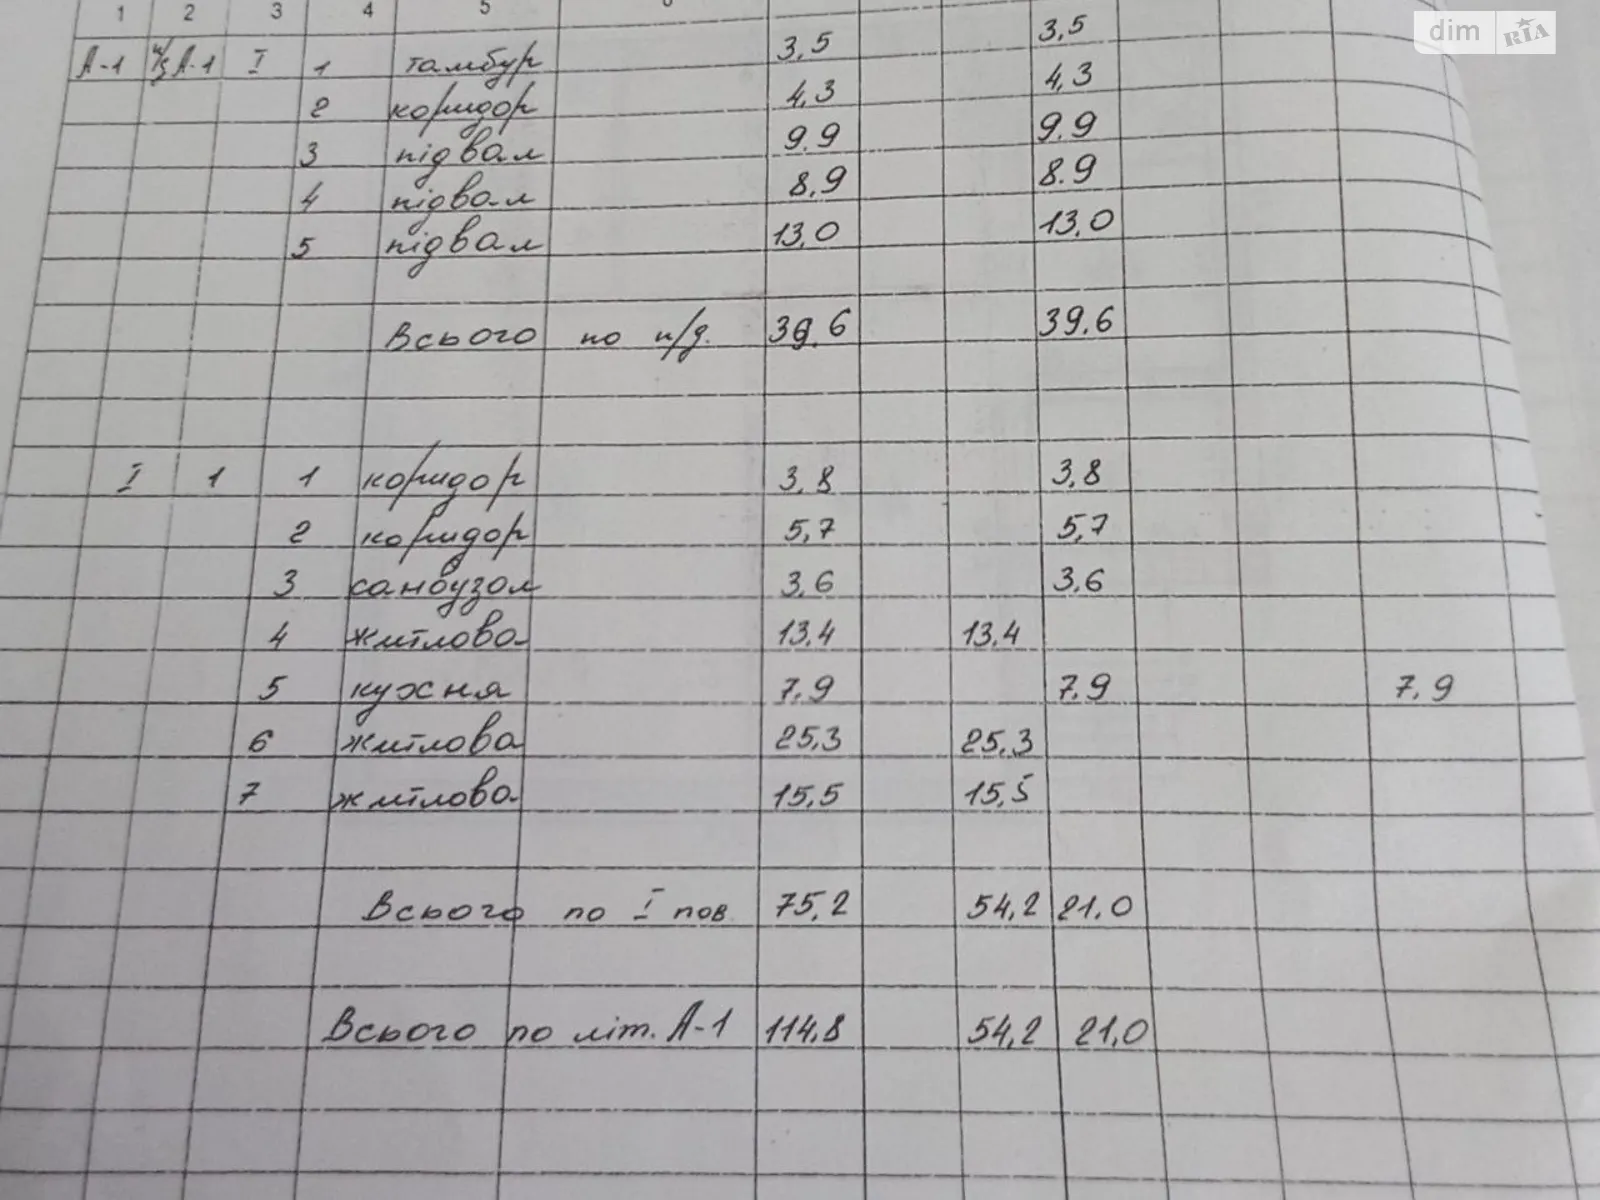 1 2 3 4 5 6
dim RIA
А-1 п/д А-1 I 1 тамбур 3,5 3,5
2 коридор 4,3 4,3
3 підвал 9.9 9.9
4 підвал 8,9 8.9
5 підвал 13,0 13,0
Всього по п/д. 39.6 39.6
I 1 1 коридор 3,8 3,8
2 коридор 5,7 5,7
3 санвузол 3,6 3,6
4 житлова 13,4 13,4
5 кухня 7.9 7.9 7.9
6 житлова 25,3 25,3
7 житлова 15,5 15,5
Всього по I пов 75,2 54,2 21,0
Всього по літ. А-1 114,8 54,2 21,0